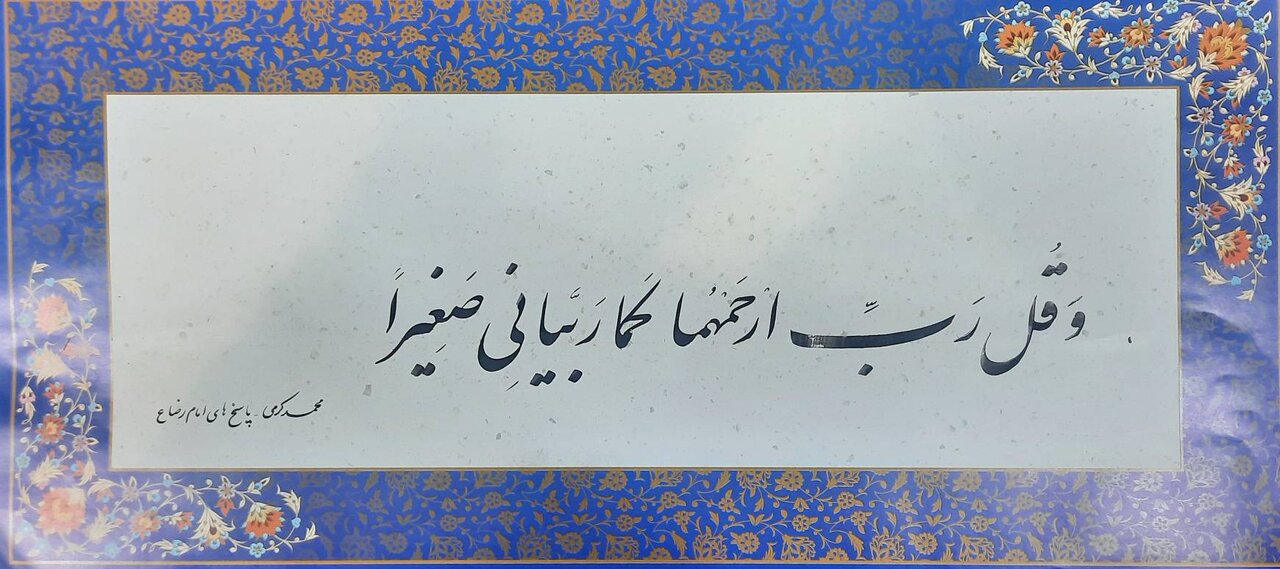 وَ قُل رَبِّ ارْحَمْهُما كَما رَبَّیانِی صَغِیراً
محمد کرمی - پاسخ های امام رضا ع